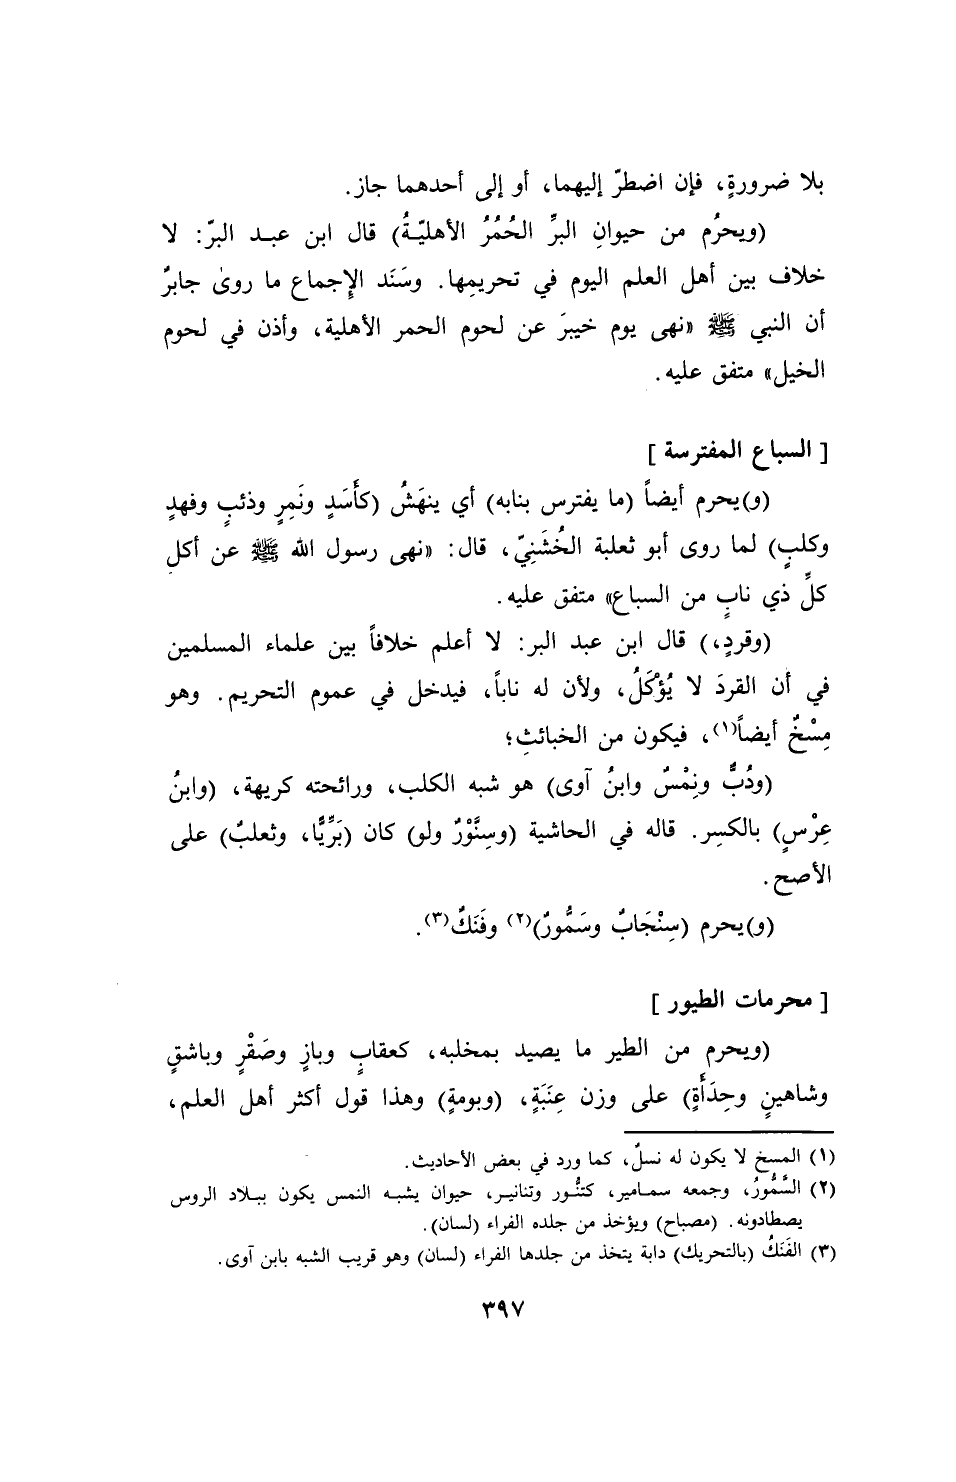 بلا ضرورةٍ، فإن اضطرّ إليهما، أو إلى أحدهما جاز.
(ويحرُم من حيوانِ البرِّ الحُمُرُ الأهليّةُ) قال ابن عبد البرّ: لا
خلاف بين أهل العلم اليوم في تحريمِها. وسَنَد الإجماع ما روىٰ جابرٌ
أن النبي ﷺ «نهى يوم خيبرَ عن لحوم الحمر الأهلية، وأذن في لحوم
الخيل» متفق عليه.
[ السباع المفترسة ]
(و)يحرم أيضاً (ما يفترس بنابه) أي ينهَشُ (كأَسَدٍ ونَمِرٍ وذئبٍ وفهدٍ
وكلبٍ) لما روى أبو ثعلبة الخُشَنِيّ، قال: «نهى رسول الله ﷺ عن أكلِ
كلِّ ذي نابٍ من السباع» متفق عليه.
(وقردٍ،) قال ابن عبد البر: لا أعلم خلافاً بين علماء المسلمين
في أن القردَ لا يُؤْكَلُ، ولأن له ناباً، فيدخل في عموم التحريم. وهو
مِسْخٌ أيضاً(١)، فيكون من الخبائثِ؛
(ودُبٌّ ونِمْسٌ وابنُ آوى) هو شبه الكلب، ورائحته كريهة، (وابنُ
عِرْسٍ) بالكسِر. قاله في الحاشية (وسِنَّوْرٌ ولو) كان (بَرِّيًّا، وثعلبٌ) على
الأصح.
(و)يحرم (سِنْجَابٌ وسَمُّورٌ)(٢) وفَنَكٌ(٣).
[ محرمات الطيور ]
(ويحرم من الطير ما يصيد بمخلبه، كعقابٍ وبازٍ وصَقْرٍ وباشقٍ
وشاهينٍ وحِدَأَةٍ) على وزن عِنَبَةٍ، (وبومةٍ) وهذا قول أكثر أهل العلم،
(١) المسخ لا يكون له نسلٌ، كما ورد في بعض الأحاديث.
(٢) السَّمُّورُ، وجمعه سمامير، كتنُّور وتنانير، حيوان يشبه النمس يكون ببلاد الروس
يصطادونه. (مصباح) ويؤخذ من جلده الفراء (لسان).
(٣) الفَنَكُ (بالتحريك) دابة يتخذ من جلدها الفراء (لسان) وهو قريب الشبه بابن آوى.
٣٩٧